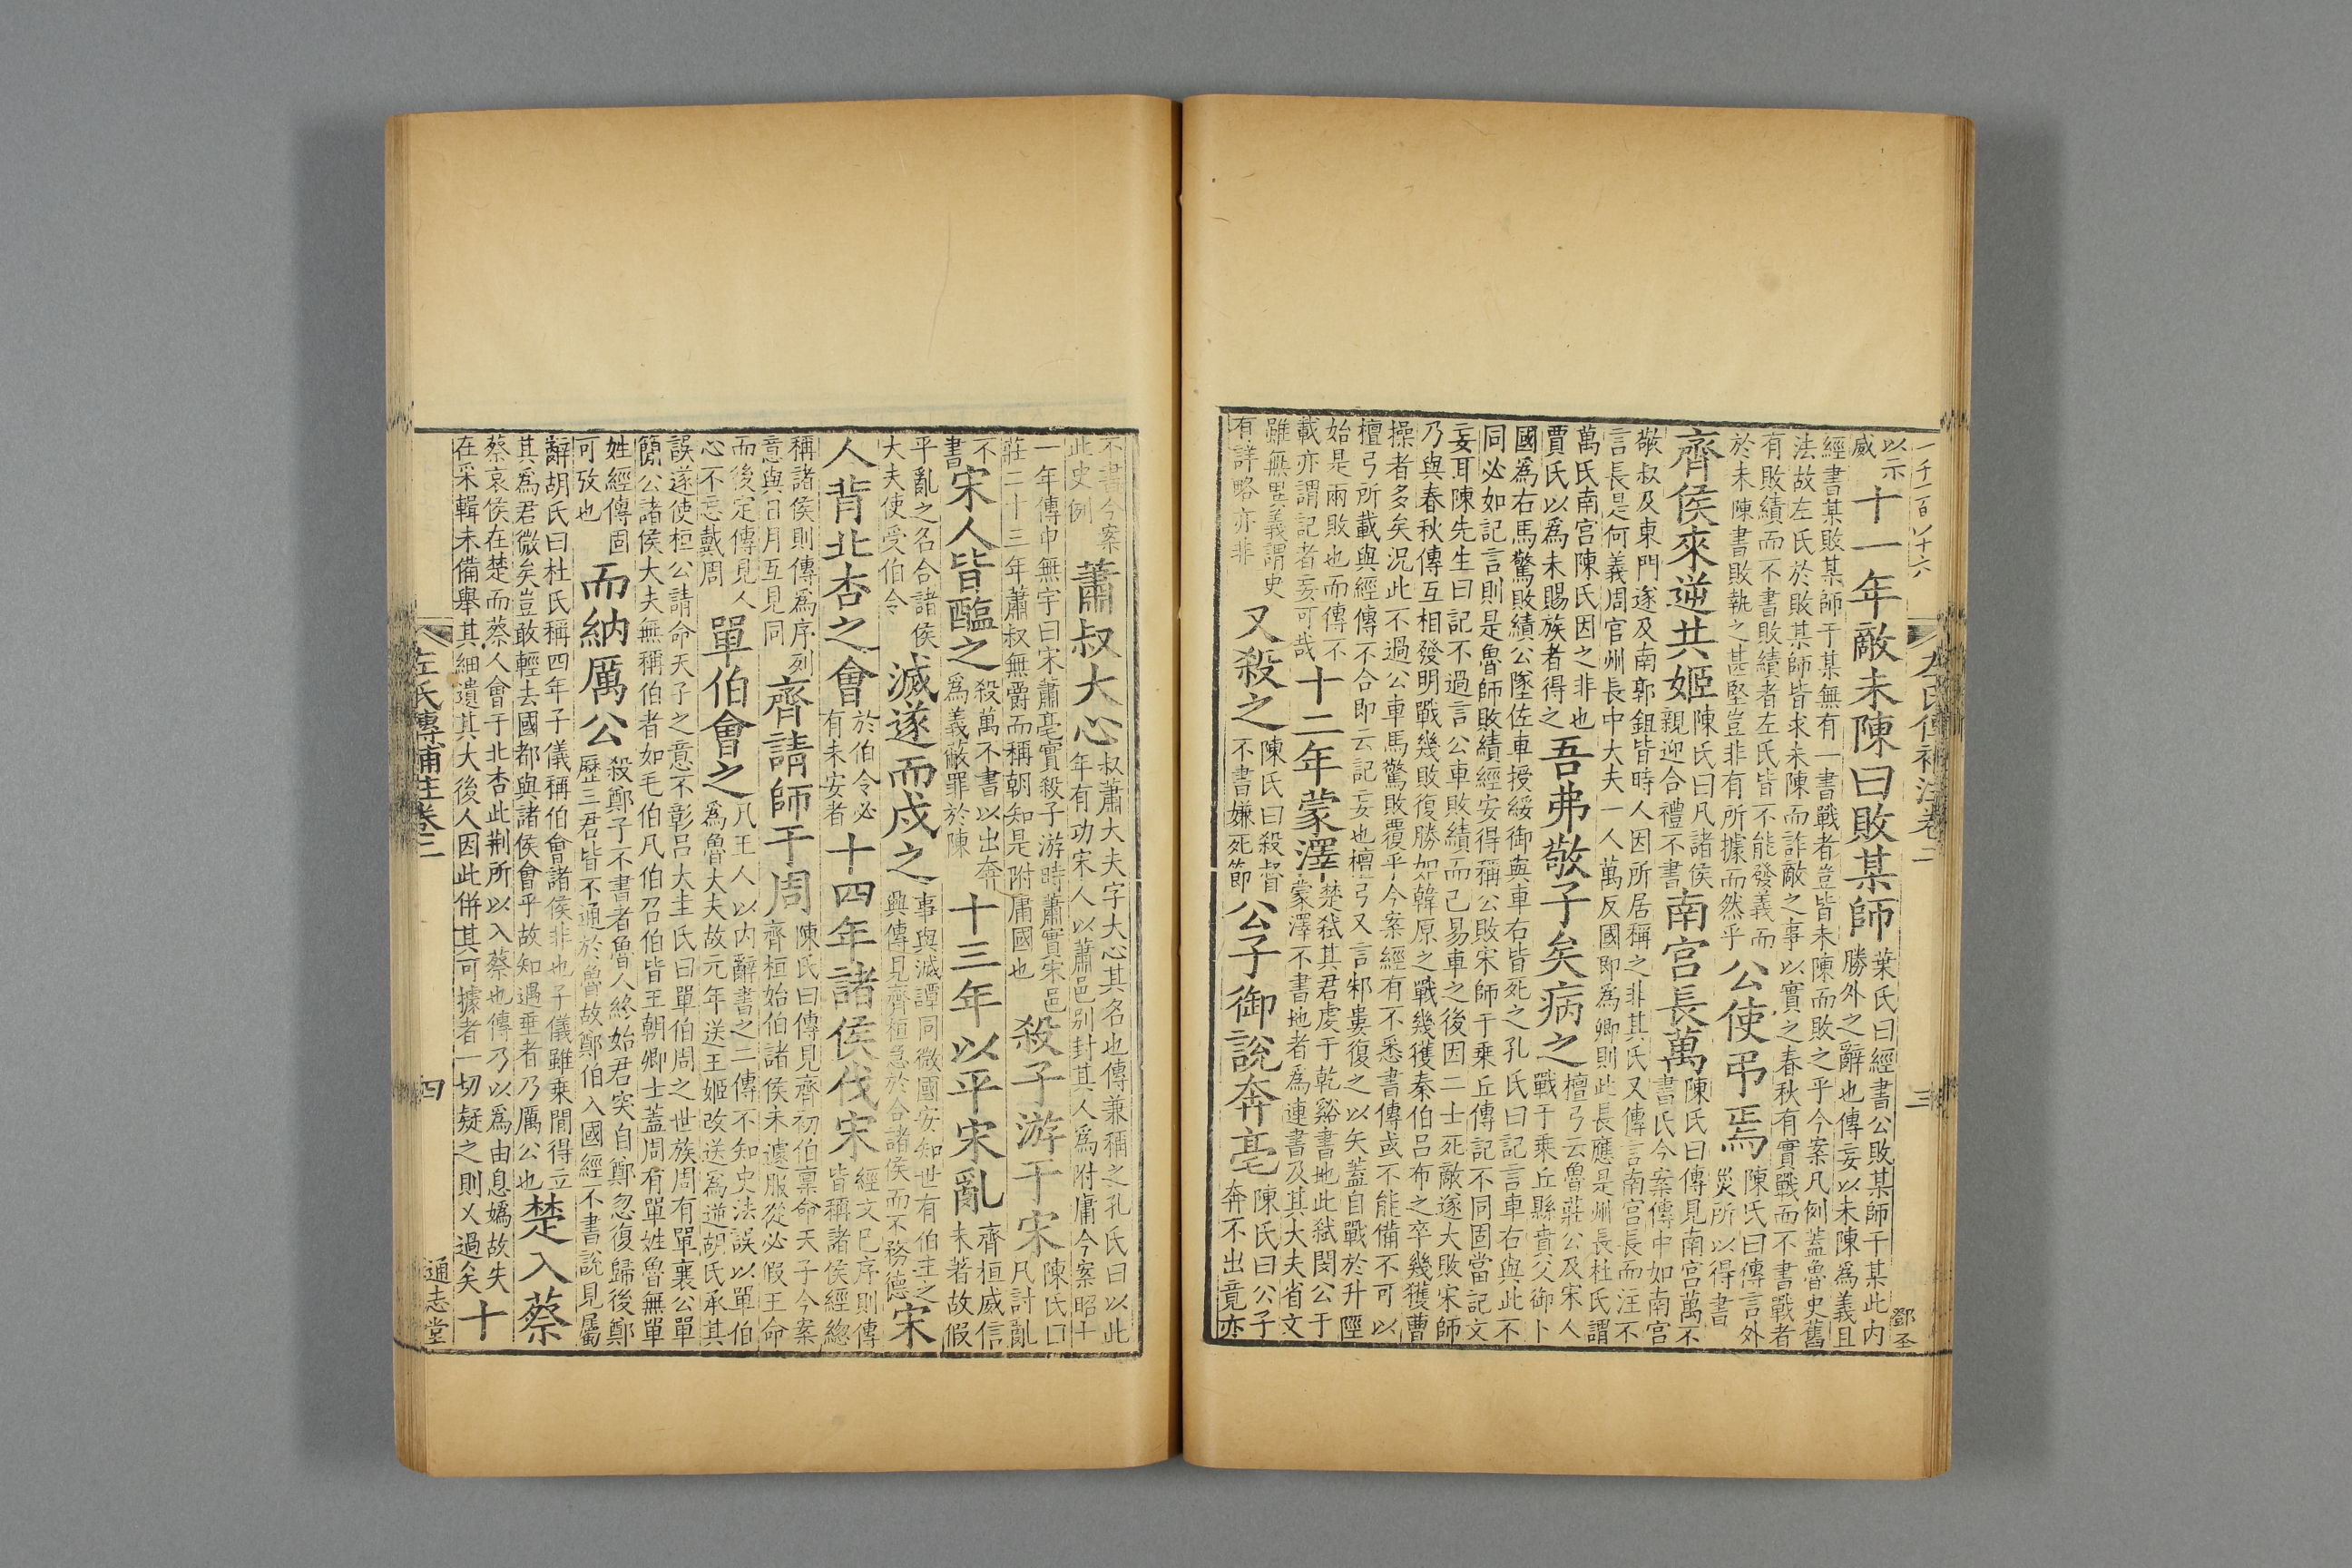 一千一百八十六
左氏傳補注卷二
三
鄧圣
以示
威
十一年敵未陳曰敗某師
葉氏曰經書公敗某師于某此内
勝外之辭也傳妄以未陳為義且
經書某敗某師于某無有一書戰者豈皆未陳而敗之乎今案凡例蓋魯史舊
法故左氏於敗某師皆求未陳而詐敵之事以實之春秋有實戰而不書戰者
有敗績而不書敗績者左氏皆不能發義而
於未陳書敗執之甚堅豈非有所據而然乎
公使弔焉
陳氏曰傳言外
災所以得書
齊侯來逆共姬
陳氏曰凡諸侯
親迎合禮不書
南宮長萬
陳氏曰傳見南宮萬不
書氏今案傳中如南宮
敬叔及東門遂及南郭鉏皆時人因所居稱之非其氏又傳言南宮長而注不
言長是何義周官州長中大夫一人萬反國即為卿則此長應是州長杜氏謂
萬氏南宮陳氏因之非也
賈氏以為未賜族者得之
吾弗敬子矣病之
檀弓云魯莊公及宋人
戰于乘丘縣賁父御卜
國為右馬驚敗績公墜佐車授綏御與車右皆死之孔氏曰記言車右與此不
同必如記言則是魯師敗績經安得稱公敗宋師于乘丘傳記不同固當記文
妄耳陳先生曰記不過言公車敗績而已易車之後因二士死敵遂大敗宋師
乃與春秋傳互相發明戰幾敗復勝如韓原之戰幾獲秦伯呂布之卒幾獲曹
操者多矣況此不過公車馬驚敗覆乎今案經有不悉書傳或不能備不可以
檀弓所載與經傳不合即云記妄也檀弓又言邾婁復之以矢蓋自戰於升陘
始是兩敗也而傳不
載亦謂記者妄可哉
十二年蒙澤
楚弒其君虔于乾谿書地此弒閔公于
蒙澤不書地者為連書及其大夫省文
雖無異義謂史
有詳略亦非
又殺之
陳氏曰殺督
不書嫌死節
公子御說奔亳
陳氏曰公子
奔不出竟亦
不書今案
此史例
蕭叔大心
叔蕭大夫字大心其名也傳兼稱之孔氏曰以此
年有功宋人以蕭邑别封其人為附庸今案昭十
一年傳申無宇曰宋蕭亳實殺子游時蕭實宋邑
莊二十三年蕭叔無爵而稱朝知是附庸國也
殺子游于宋
陳氏曰
凡討亂
不
書
宋人皆醢之
殺萬不書以出奔
為義蔽罪於陳
十三年以平宋亂
齊桓威信
未著故假
平亂之名合諸侯
大夫使受伯令
滅遂而戍之
事與滅譚同微國安知世有伯主之
興傳見齊桓急於合諸侯而不務德
宋
人背北杏之會
於伯令必
有未安者
十四年諸侯伐宋
經文已序則傳
皆稱諸侯經緫
稱諸侯則傳為序列
意與日月互見同
齊請師于周
陳氏曰傳見齊初伯禀命天子今案
齊桓始伯諸侯未遽服從必假王命
而後定傳見人
心不忘戴周
單伯會之
凡王人以内辭書之二傳不知史法誤以單伯
為魯大夫故元年送王姬改送為逆胡氏承其
誤遂使桓公請命天子之意不彰呂大圭氏曰單伯周之世族周有單襄公單
簡公諸侯大夫無稱伯者如毛伯凡伯召伯皆王朝卿士蓋周有單姓魯無單
姓經傳固
可攷也
而納厲公
殺鄭子不書者魯人終始君突自鄭忽復歸後鄭
歴三君皆不通於魯故鄭伯入國經不書說見屬
辭胡氏曰杜氏稱四年子儀稱伯會諸侯非也子儀雖乗間得立
其為君微矣豈敢輕去國都與諸侯會乎故知遇垂者乃厲公也
楚入蔡
蔡哀侯在楚而蔡人會于北杏此荆所以入蔡也傳乃以為由息嬀故失
在采輯未備舉其細遺其大後人因此併其可據者一切疑之則又過矣
十
左氏傳補注卷二
四
通志堂